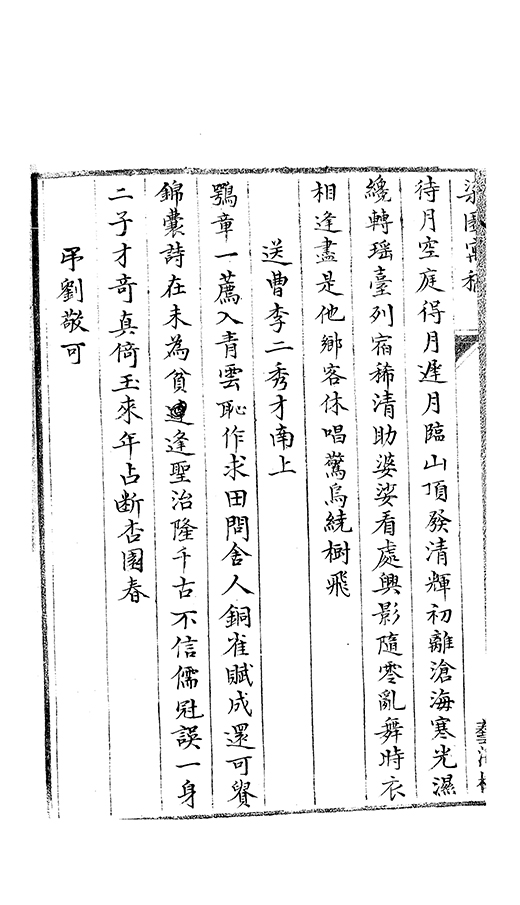 梁園寓稿
待月空庭得月遲月臨山頂發清輝初離滄海寒光濕
纔轉瑶臺列宿稀清助婆娑看處興影隨零亂舞時衣
相逢盡是他鄉客休唱驚烏繞樹飛
送曹李二秀才南上
鶚章一薦入青雲恥作求田問舍人銅雀賦成還可賞
錦囊詩在未為貧遭逢聖治隆千古不信儒冠誤一身
二子才奇真倚玉來年占断杏園春
弔劉敬可